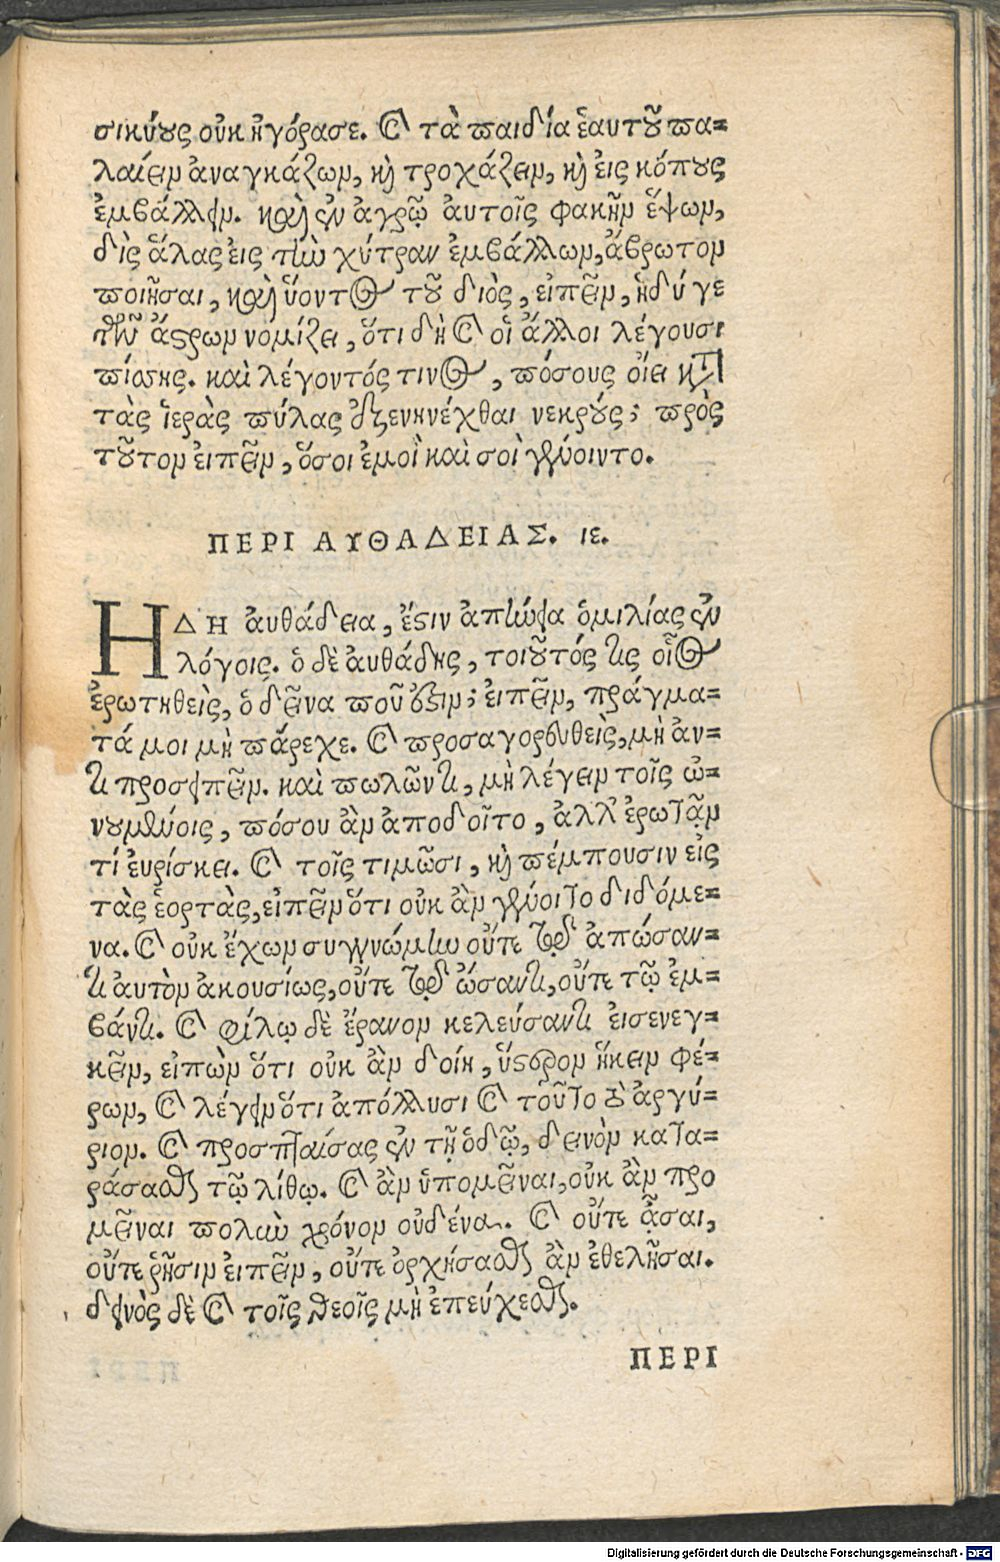 σικύους οὐκ ἠγόρασε. καὶ τὰ παιδία ἑαυτοῦ πα-
λαίειν ἀναγκάζων, καὶ τροχάζειν, καὶ εἰς κόπους
ἐμβάλλειν. καὶ ἐν ἀγρῷ αὐτοῖς φακῆν ἕψων,
δὶς ἅλας εἰς τὴν χύτραν ἐμβάλλων, ἄβρωτον
ποιῆσαι, καὶ ὕοντος τοῦ διὸς, εἰπεῖν, ἡδύ γε
τῶν ἄστρων νομίζει, ὅτι δὴ καὶ οἱ ἄλλοι λέγουσι
πίσσης. καὶ λέγοντός τινος, πόσους οἴει κατὰ
τὰς ἱερὰς πύλας ἐξενηνέχθαι νεκρούς; πρὸς
τοῦτον εἰπεῖν, ὅσοι ἐμοὶ καὶ σοὶ γένοιντο.
ΠΕΡΙ ΑΥΘΑΔΕΙΑΣ. ιε.
Η ΔΗ αὐθάδεια, ἔστιν ἀπήνεια ὁμιλίας ἐν
λόγοις. ὁ δὲ αὐθάδης, τοιοῦτός τις οἷος
ἐρωτηθεὶς, ὁ δεῖνα ποῦ ἐστιν; εἰπεῖν, πράγμα-
τά μοι μὴ πάρεχε. καὶ προσαγορευθεὶς, μὴ ἀν-
τιπροσειπεῖν. καὶ πωλῶν τι, μὴ λέγειν τοῖς ὠ-
νουμένοις, πόσου ἂν ἀποδοῖτο, ἀλλ' ἐρωτᾷν
τί εὑρίσκει. καὶ τοῖς τιμῶσι, καὶ πέμπουσιν εἰς
τὰς ἑορτὰς, εἰπεῖν ὅτι οὐκ ἂν γένοιτο διδόμε-
να. καὶ οὐκ ἔχων συγγνώμην οὔτε τῷ ἀπώσαν-
τι αὐτὸν ἀκουσίως, οὔτε τῷ ὤσαντι, οὔτε τῷ ἐμ-
βάντι. καὶ φίλῳ δὲ ἔρανον κελεύσαντι εἰσενεγ-
κεῖν, εἰπὼν ὅτι οὐκ ἂν δοίη, ὕστερον ἥκειν φέ-
ρων, καὶ λέγειν ὅτι ἀπόλλυσι καὶ τοῦτο τὸ ἀργύ-
ριον. καὶ προσπταίσας ἐν τῇ ὁδῷ, δεινὸν κατα-
ράσασθαι τῷ λίθῳ. καὶ ἂν ὑπομεῖναι, οὐκ ἂν προ
μεῖναι πολὺν χρόνον οὐδένα. καὶ οὔτε ᾆσαι,
οὔτε ῥῆσιν εἰπεῖν, οὔτε ὀρχήσασθαι ἂν ἐθελῆσαι.
δεινὸς δὲ καὶ τοῖς θεοῖς μὴ ἐπεύχεσθαι.
ΠΕΡΙ
Digitalisierung gefördert durch die Deutsche Forschungsgemeinschaft - DFG